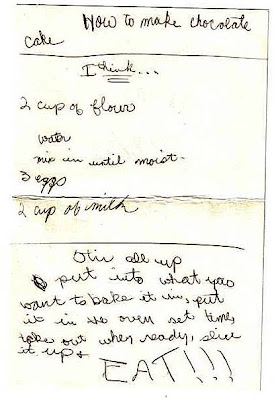 How to make chocolate
cake
I think...
2 cup of flour
water
mix in until moist.
3 eggs
2 cup of milk
Stir all up
put into what you
want to bake it in, put
it in the oven set time,
take out when ready, slice
it up &
EAT!!!